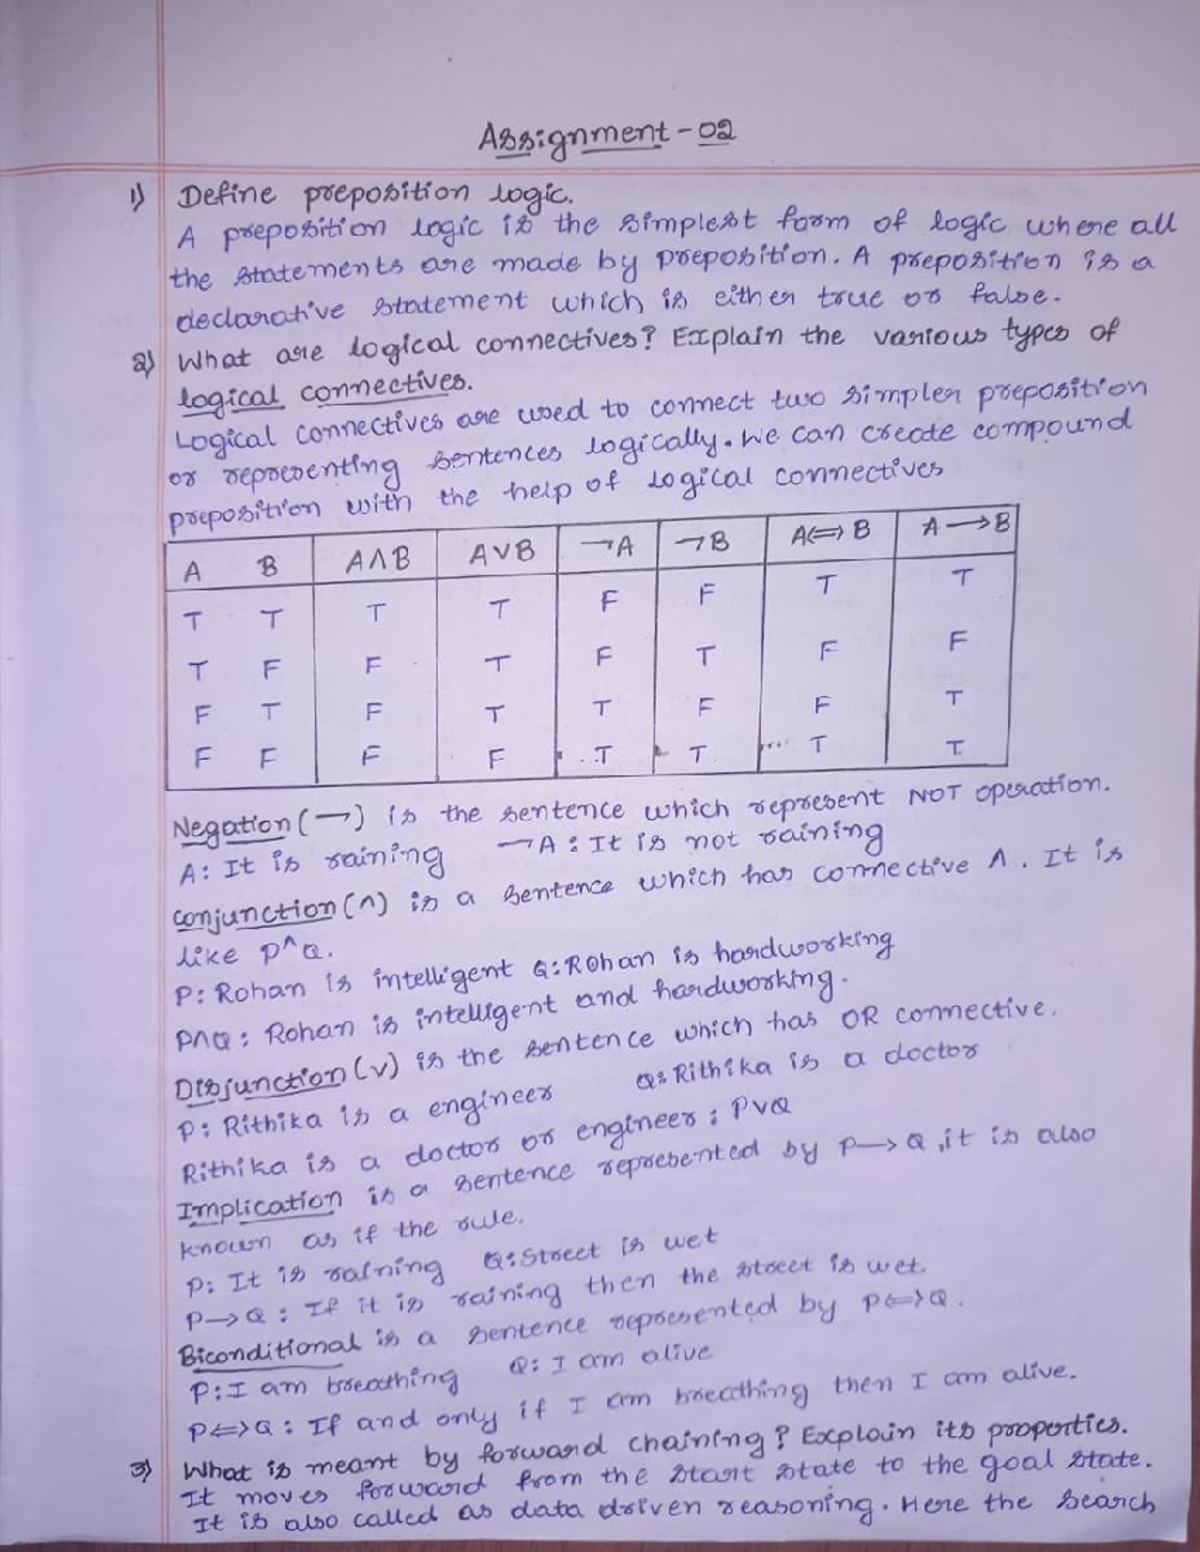 Assignment-02
1) Define preposition logic.
A preposition logic is the simplest form of logic where all
the statements are made by preposition. A preposition is a
declarative statement which is either true or false.
2) What are logical connectives? Explain the various types of
logical connectives.
Logical connectives are used to connect two simpler preposition
or representing sentences logically. We can create compound
preposition with the help of logical connectives
A B A∧B A∨B ¬A ¬B A⇔B A→B
T T T T F F T T
T F F T F T F F
F T F T T F F T
F F F F T T T T
Negation(¬) is the sentence which represent NOT operation.
A: It is raining ¬A: It is not raining
conjunction(∧) is a sentence which has connective ∧. It is
like P^Q.
P: Rohan is intelligent Q: Rohan is hardworking
P∧Q: Rohan is intelligent and hardworking.
Disjunction(∨) is the sentence which has OR connective.
P: Rithika is a engineer Q: Rithika is a doctor
Rithika is a doctor or engineer: P∨Q
Implication is a sentence represented by P→Q, it is also
known as if the rule.
P: It is raining Q: Street is wet
P→Q: If it is raining then the street is wet.
Biconditional is a sentence represented by P⇔Q.
P: I am breathing Q: I am alive
P⇔Q: If and only if I am breathing then I am alive.
3) What is meant by forward chaining? Explain its properties.
It moves forward from the start state to the goal state.
It is also called as data driven reasoning. Here the search